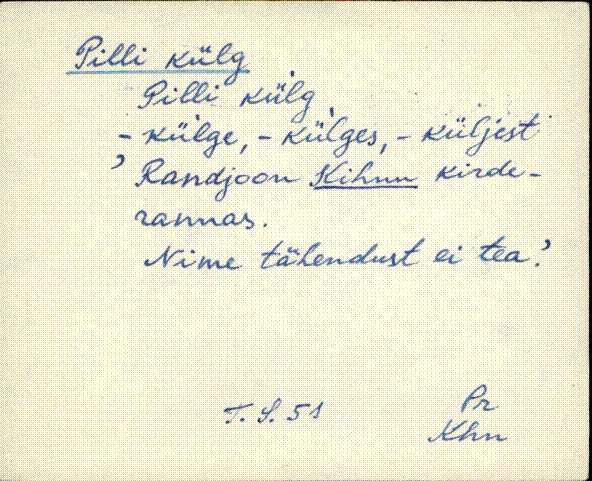 Pilli külg
Pilli kǜlg
- kǜlge, - kǜlges, - küljest
' Randjoon Kihnu kirde-
rannas.
Nime tähendust ei tea.'
T. S. 51
Pr
Khn